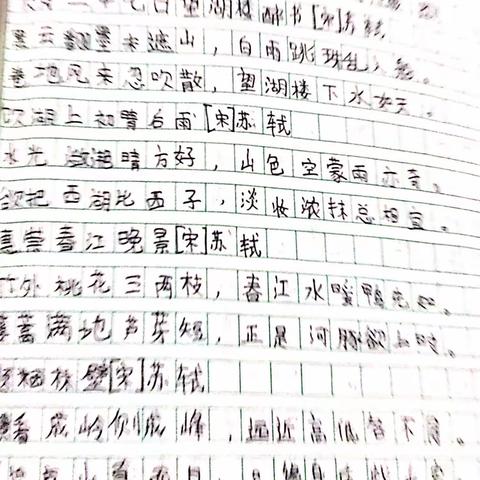 二十七日望湖楼醉书[宋]苏轼
黑云翻墨未遮山,白雨跳珠乱入船。
卷地风来忽吹散,望湖楼下水如天。
饮湖上初晴后雨[宋]苏轼
水光潋滟晴方好,山色空蒙雨亦奇。
欲把西湖比西子,淡妆浓抹总相宜。
惠崇春江晚景[宋]苏轼
竹外桃花三两枝,春江水暖鸭先知。
蒌蒿满地芦芽短,正是河豚欲上时。
题西林壁[宋]苏轼
横看成岭侧成峰,远近高低各不同。